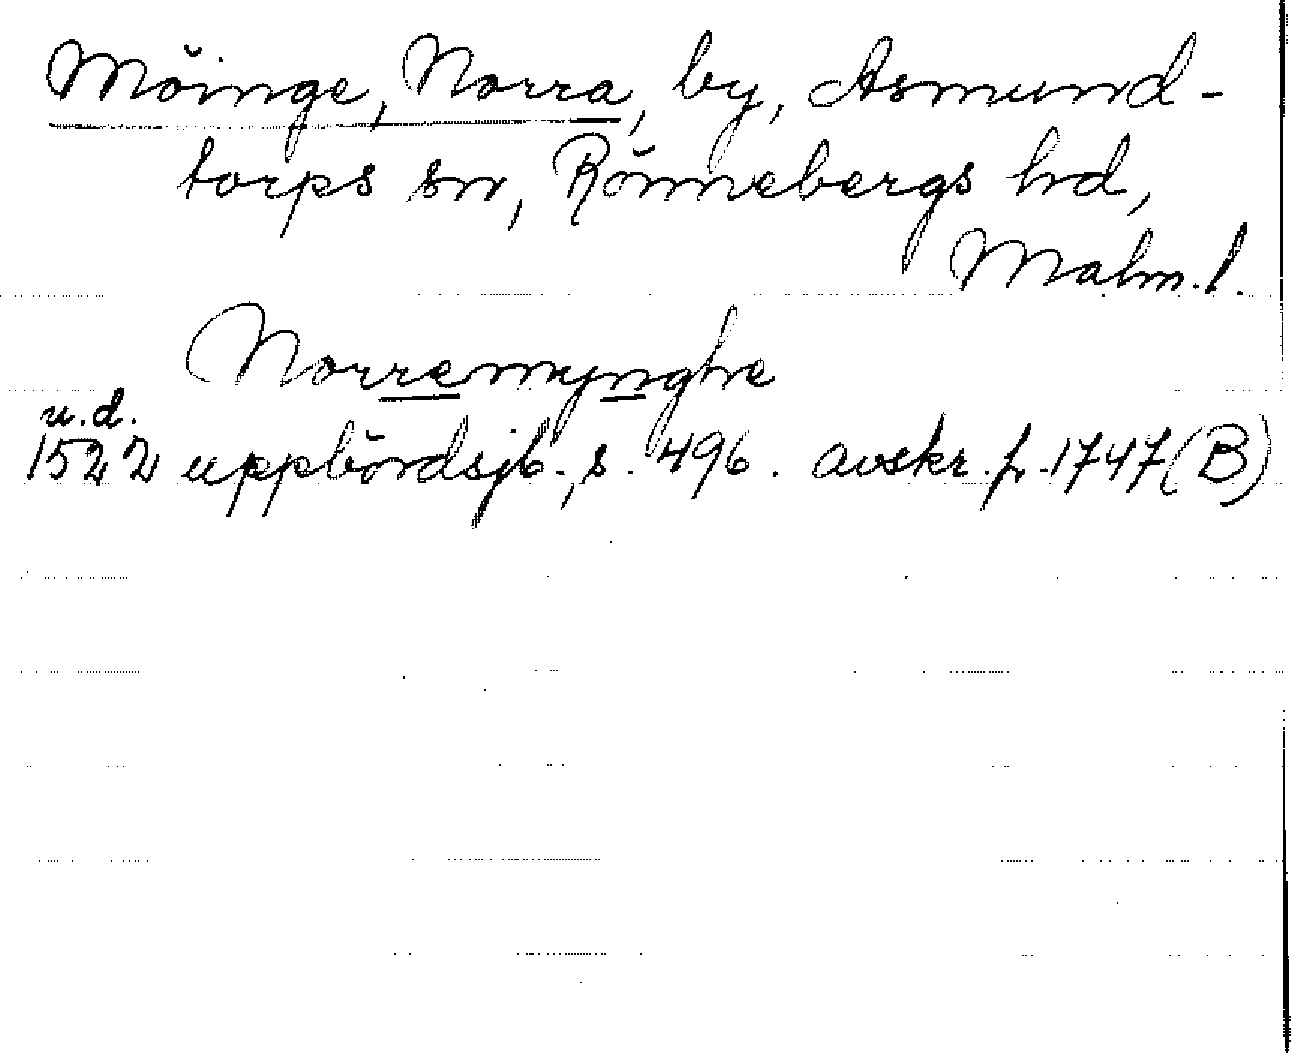 Möinge, Norra, by, Asmund-
torps sn, Rönnebergs hd,
Malm. l.
Norremynghe
u.d.
1522 uppbördsjb., s. 496. avskr. fr. 1747 (B)